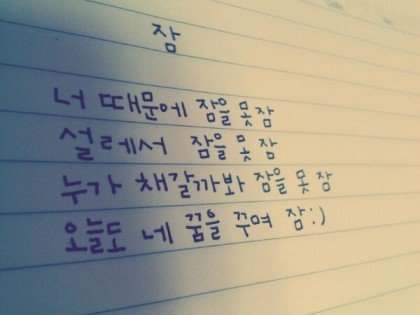 잠
너 때문에 잠을 못잠
설레서 잠을 못 잠
누가 채갈까봐 잠을 못 잠
오늘도 네 꿈을 꾸며 잠:)